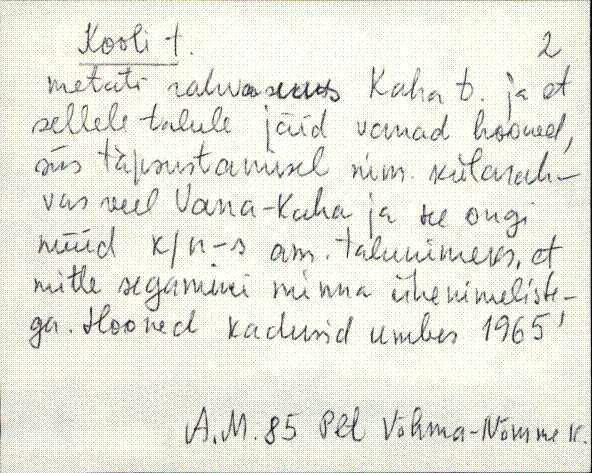 Kooli t. 2
metati rahvasuus Kaha t. ja et
sellele talule jäid vanad hooned,
siis täpsustamisel nim. külarah-
vas veel Vana-Kaha ja see ongi
nüüd k/n-s am. talunimeks, et
mitte segamini minna ühenimeliste-
ga. Hooned kadusid umbes 1965'
A.M. 85 Plt Võhma-Nõmme k.